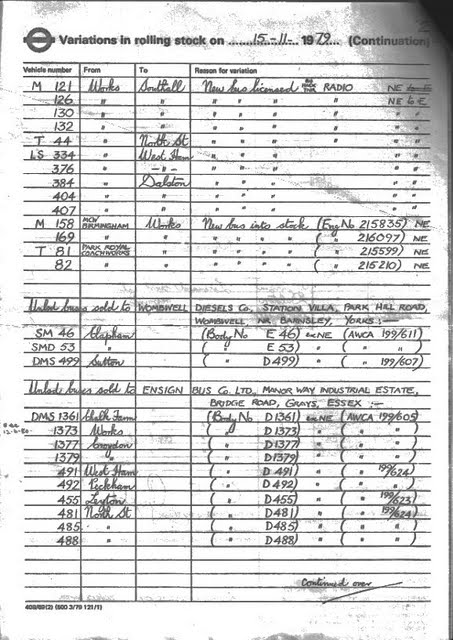 Variations in rolling stock on 15-11-1979 (Continuation)
Vehicle number From To Reason for variation
M 121 Works Southall New bus licensed RADIO NE
126 " " " " " " NE to E
130 " " " " " " " "
132 " " " " " " " "
T 44 " North St " " " " " "
LS 334 " West Ham " " " " " "
376 " -"- " " " " " "
384 " Dalston " " " " " "
404 " " " " " " " "
407 " " " " " " " "
M 158 MCW BIRMINGHAM Works New bus into stock (Eng No 215835) NE
169 " " " " " " ( " 216097) NE
T 81 PARK ROYAL COACHWORKS " " " " " ( " 215599) NE
82 " " " " " " ( " 215210) NE
Unlicd buses sold to WOMBWELL DIESELS Co., STATION VILLA, PARK HILL ROAD,
WOMBWELL, NR BARNSLEY, YORKS:-
SM 46 Clapham (Body No E 46) NE (AWCA 199/611)
SMD 53 " ( " E 53) " ( " " )
DMS 499 Sutton ( " D499) " ( " 199/607)
Unlicd buses sold to ENSIGN BUS Co. LTD., MANOR WAY INDUSTRIAL ESTATE,
BRIDGE ROAD, GRAYS, ESSEX :-
DMS 1361 Chalk Farm (Body No D1361) NE (AWCA 199/605)
1373 Works ( " D1373) " ( " " )
1377 Croydon ( " D1377) " ( " " )
1379 " ( " D1379) " ( " " )
491 West Ham ( " D 491) " ( " 199/624)
492 Peckham ( " D492) " ( " " )
455 Leyton ( " D455) " ( " 199/623)
481 North St ( " D481) " ( " 199/624)
485 " ( " D485) " ( " " )
488 " ( " D488) " ( " " )
Continued over
409/89(2) (500 3/79 121/1)